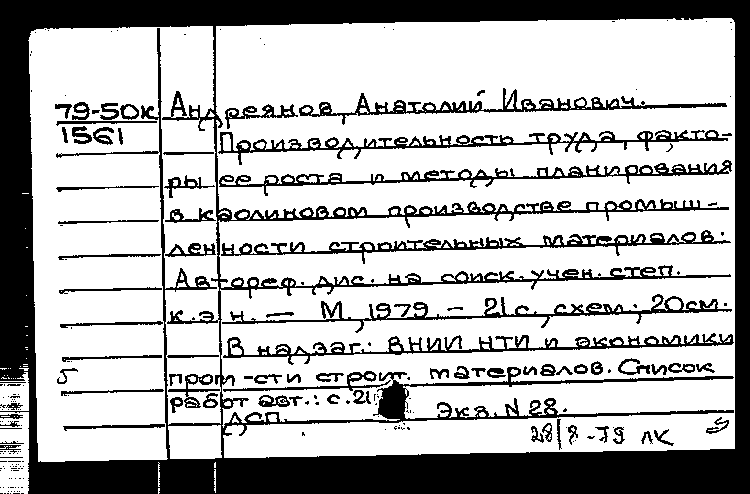 79-50к Андреянов, Анатолий Иванович.
1561 Производительность труда, факто-
ры ее роста и методы планирования
в каолиновом производстве промыш-
ленности строительных материалов:
Автореф. дис. на соиск. учен. степ.
к.э.н. — М., 1979. – 21 с., схем.; 20 см.
В надзаг.: ВНИИ НТИ и экономики
пром-сти строит. материалов. Список
работ авт.: с. 21
ДСП. Экз. N 28.
28/8-79 ЛК